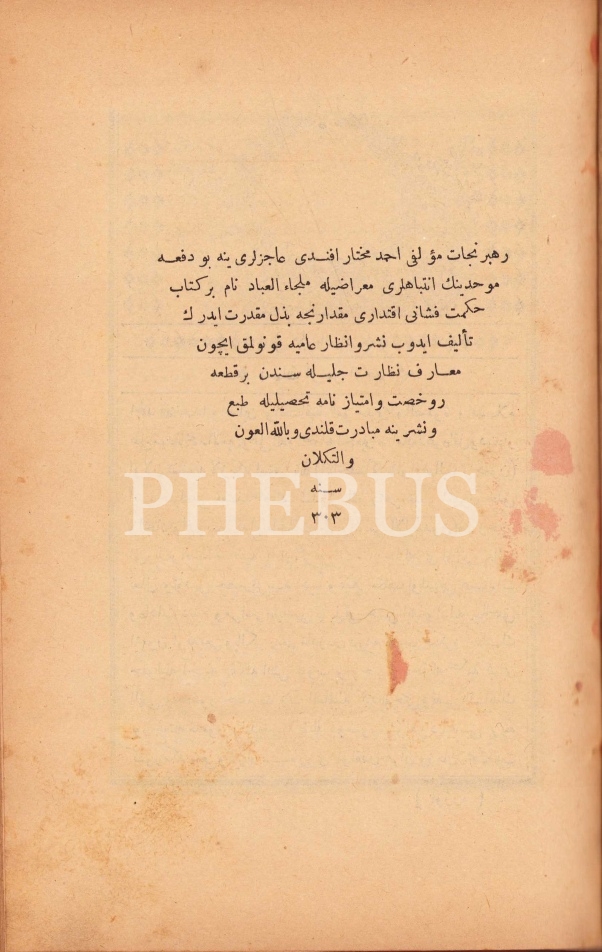 رهبر نجات مؤلفی احمد مختار افندی عاجزلری ینه بو دفعه
موحدینك انتباهلری معراضیله ملجاء العباد نام بركتاب
حكمت فشانی اقتداری مقدارنجه بذل مقدرت ایدرك
تألیف ایدوب نشر و انظار عامیه قونولمق ایچون
معارف نظارت جلیله سندن برقطعه
روخصت و امتیاز نامه تحصیلیله طبع
و نشرینه مبادرت قلندی و بالله العون
والتكلان
سنه
٣٠٣
PHEBUS